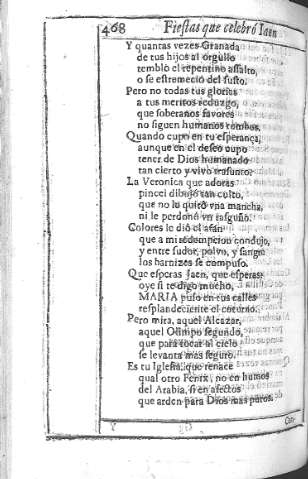 468 Fiestas que celebró Iaen
Y quantas vezes Granada
de tus hijos al orgullo
tembló el repentino assalto,
o se estremeció del susto.
Pero no todas tus glorias
a tus meritos reduzgo,
que soberanos favores
no siguen humanos rumbos.
Quando cupo en tu esperança,
aunque en el deseo cupo
tener de Dios humanado
tan cierto y vivo trasunto.
La Veronica que adoras
pincel dibujó tan culto,
que no le quitó vna mancha,
ni le perdonó vn rasguño.
Colores le dió el afán
que a mi redempcion condujo,
y entre sudor, polvo, y sangre
los barnizes se compuso.
Que esperas Jaen, que esperas
oye si te digo mucho,
MARIA puso en tus calles
resplandeciente el coturno.
Pero mira, aquel Alcazar,
aquel Olimpo segundo,
que para tocar al cielo
se levanta mas seguro.
Es tu Iglesia, que renace
qual otro Fenix, no en humos
del Arabia, si en afectos
que arden para Dios mas puros.